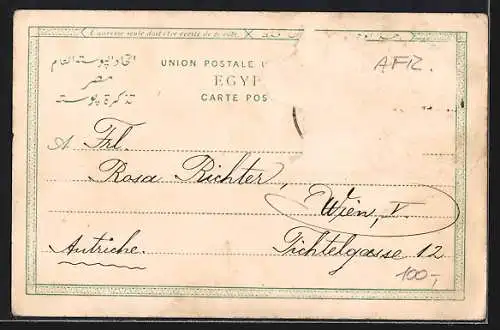 L'adresse seule doit être écrite de ce côté.
اتحاد البوستة العام
مصر
تذكرة بوسته
UNION POSTALE
EGYP
CARTE POS
AFR.
A Frl.
Rosa Richter,
Wien, V.
Autriche. Fichtelgasse 12
100,-